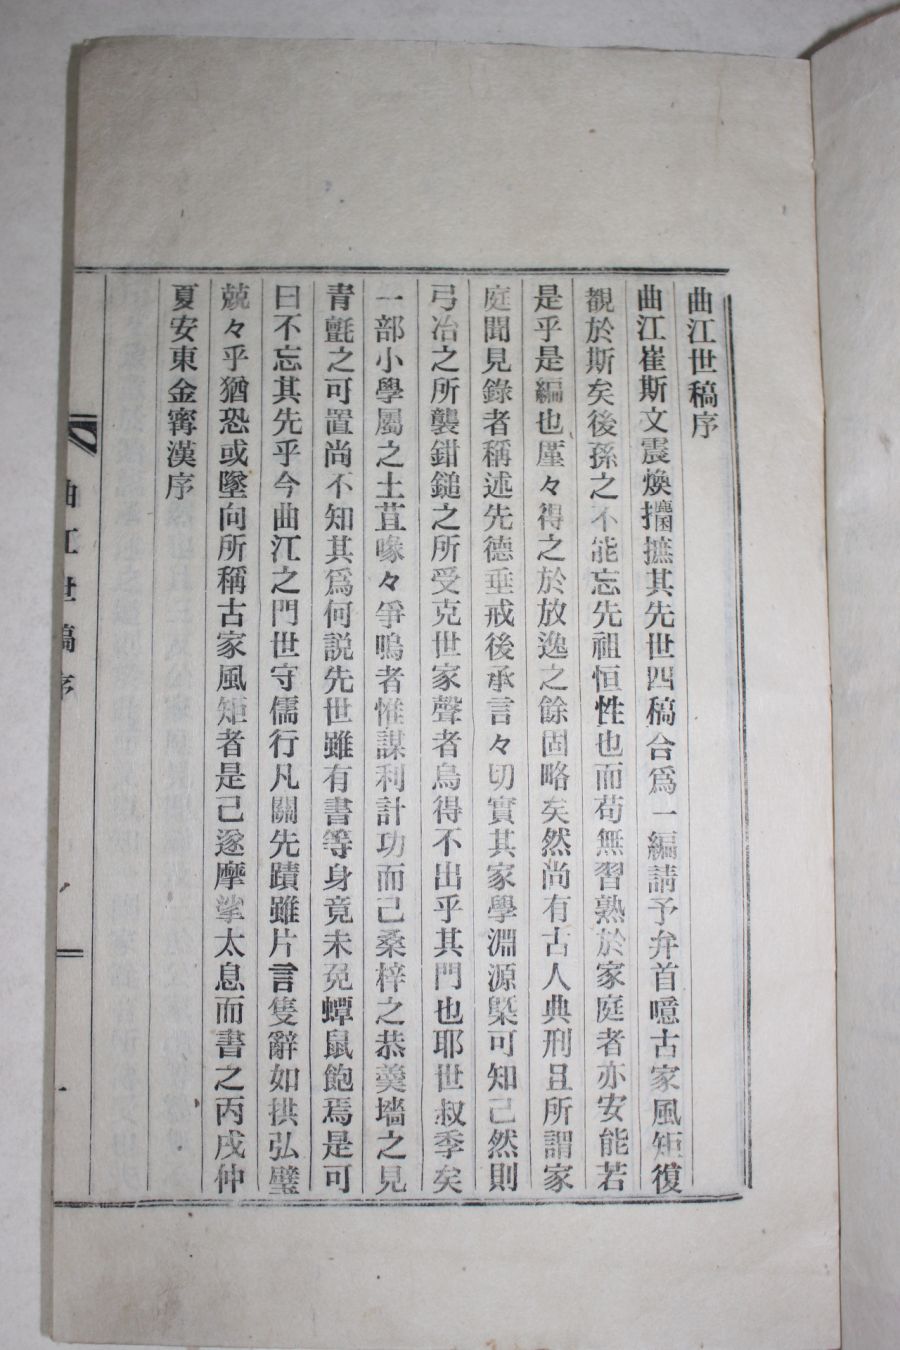 曲江世稿序
曲江崔斯文震煥攟摭其先世四稿合爲一編請予弁首噫古家風矩復
觀於斯矣後孫之不能忘先祖恒性也而苟無習熟於家庭者亦安能若
是乎是編也厪々得之於放逸之餘固略矣然尙有古人典刑且所謂家
庭聞見錄者稱述先德垂戒後承言々切實其家學淵源槩可知己然則
弓冶之所襲鉗鎚之所受克世家聲者烏得不出乎其門也耶世叔季矣
一部小學屬之土苴喙々爭鳴者惟謀利計功而己桑梓之恭羹墻之見
青氈之可置尚不知其爲何説先世雖有書等身竟未免蟫鼠飽焉是可
曰不忘其先乎今曲江之門世守儒行凡關先蹟雖片言隻辭如拱弘璧
兢々乎猶恐或墜向所稱古家風矩者是己遂摩挲太息而書之丙戌仲
夏安東金甯漢序
曲江世稿序
一